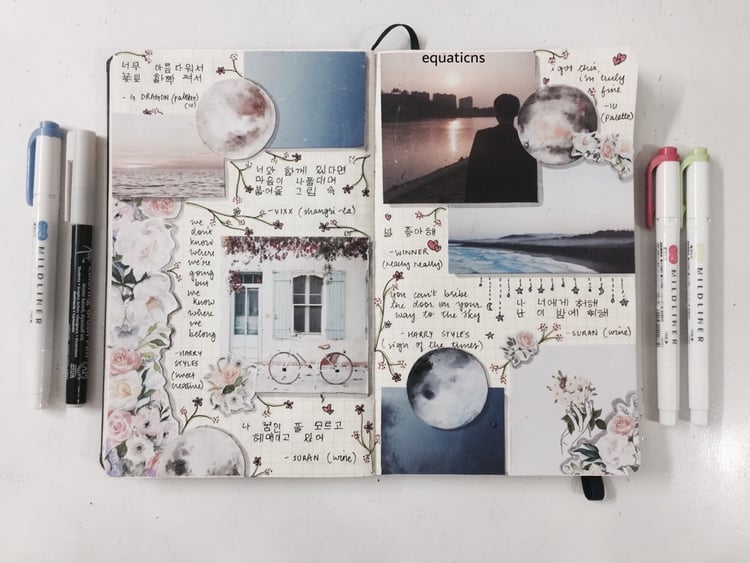 너무 아름다워서
꽃잎 활짝 펴서
- G DRAGON (palette)
(IU)
너와 함께 있다면
마음이 나풀대며
불어올 그림 속
-VIXX (shangri-la)
we
don't
know
where
we're
going
but
we
know
where
we
belong
-HARRY
STYLES
(sweet
creature)
나 꿈인 줄 모르고
헤매이고 있어
- SURAN (wine)
equaticns
i got this,
i'm truly
fine
-IU
(Palette)
널 좋아해
-WINNER
(really really)
You can't bribe
the door on your
way to the sky
- HARRY STYLES
(sign of the times)
나 너에게 취해
난 이 밤에 취해
-SURAN (wine)
MILDLINER
MILDLINER
MILDLINER